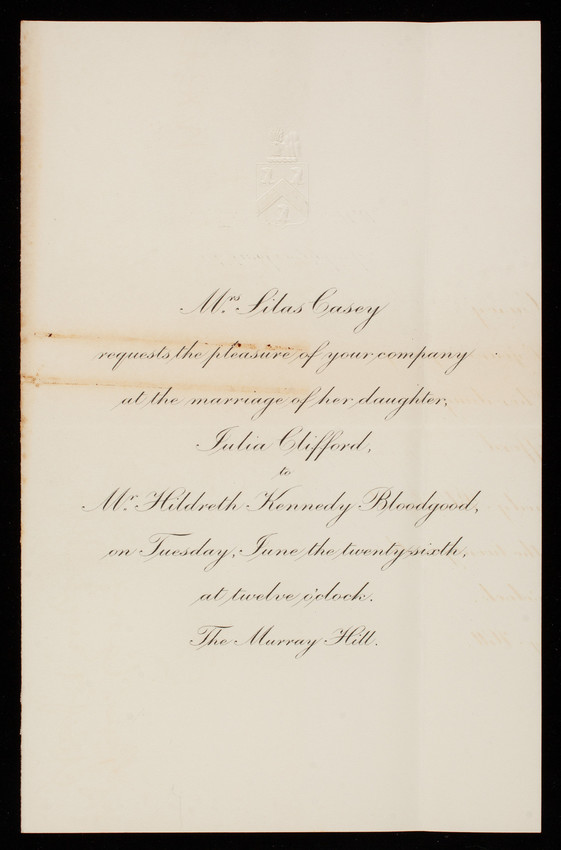 Mrs Silas Casey
requests the pleasure of your company
at the marriage of her daughter,
Julia Clifford,
to
Mr. Hildreth Kennedy Bloodgood,
on Tuesday, June the twenty sixth,
at twelve o'clock.
The Murray Hill.